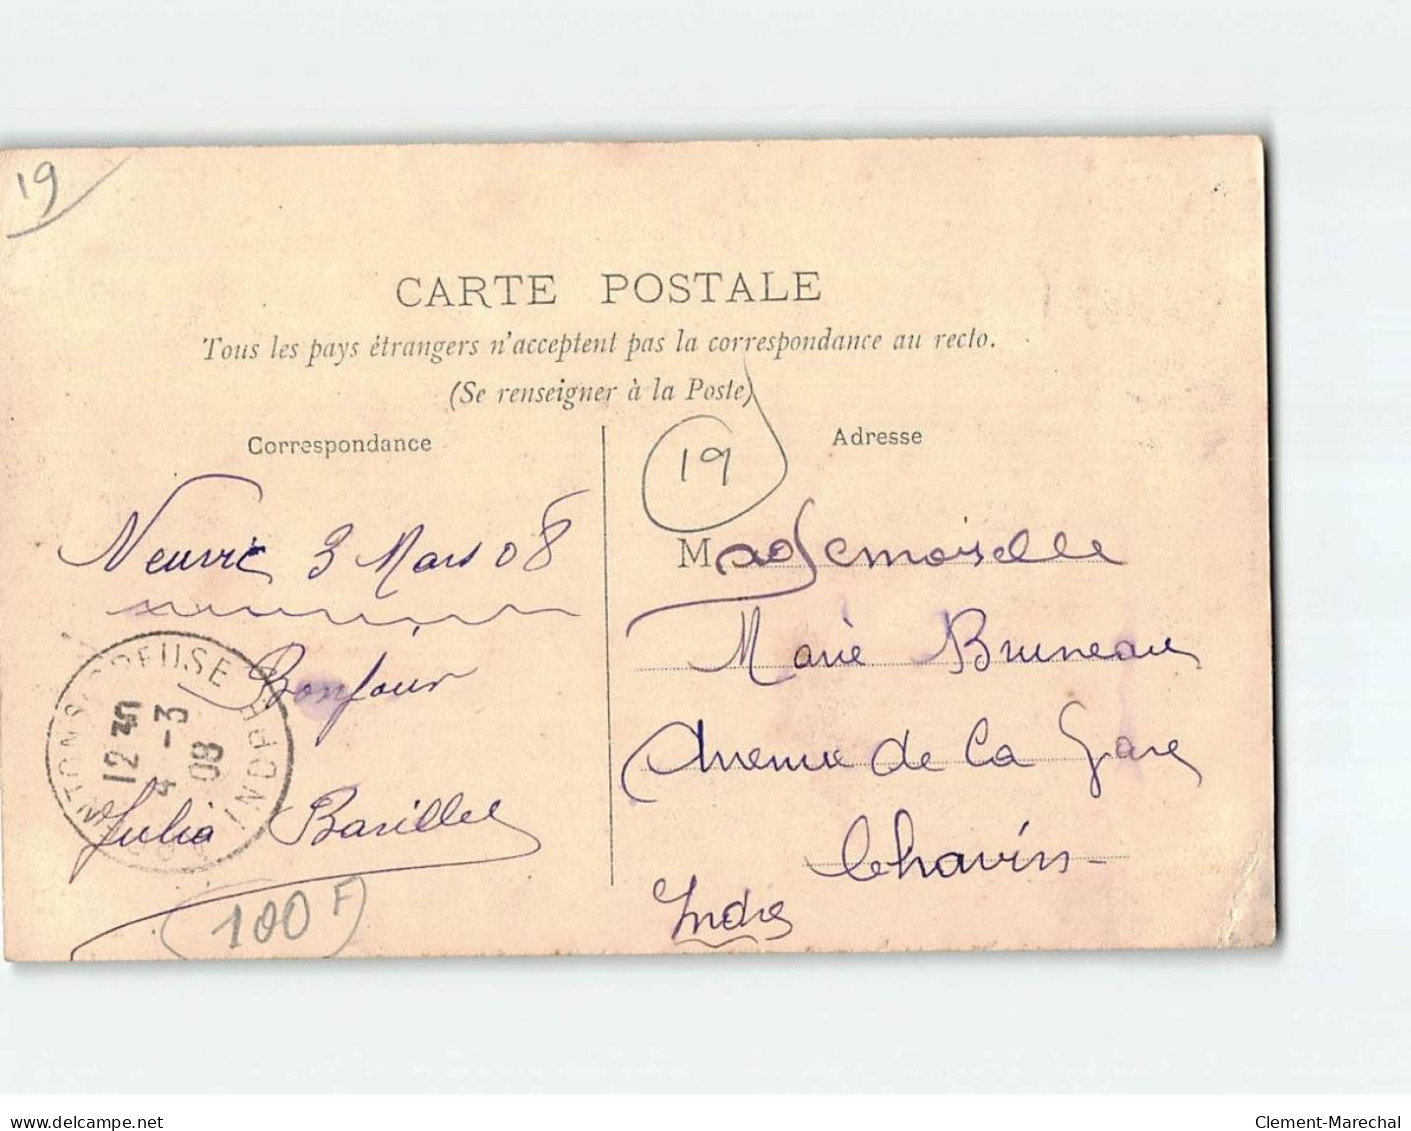 19
CARTE POSTALE
Tous les pays étrangers n'acceptent pas la correspondance au recto.
(Se renseigner à la Poste)
Correspondance
Neuvic 3 Mars 08
Bonjour
Julia Barillet
100F
12 35
4 -3
08
CREUSE
INDRE
19
Adresse
Mademoiselle
Marie Bruneau
Avenue de La Gare
Chavin
Indre
www.delcampe.net
Clement-Marechal